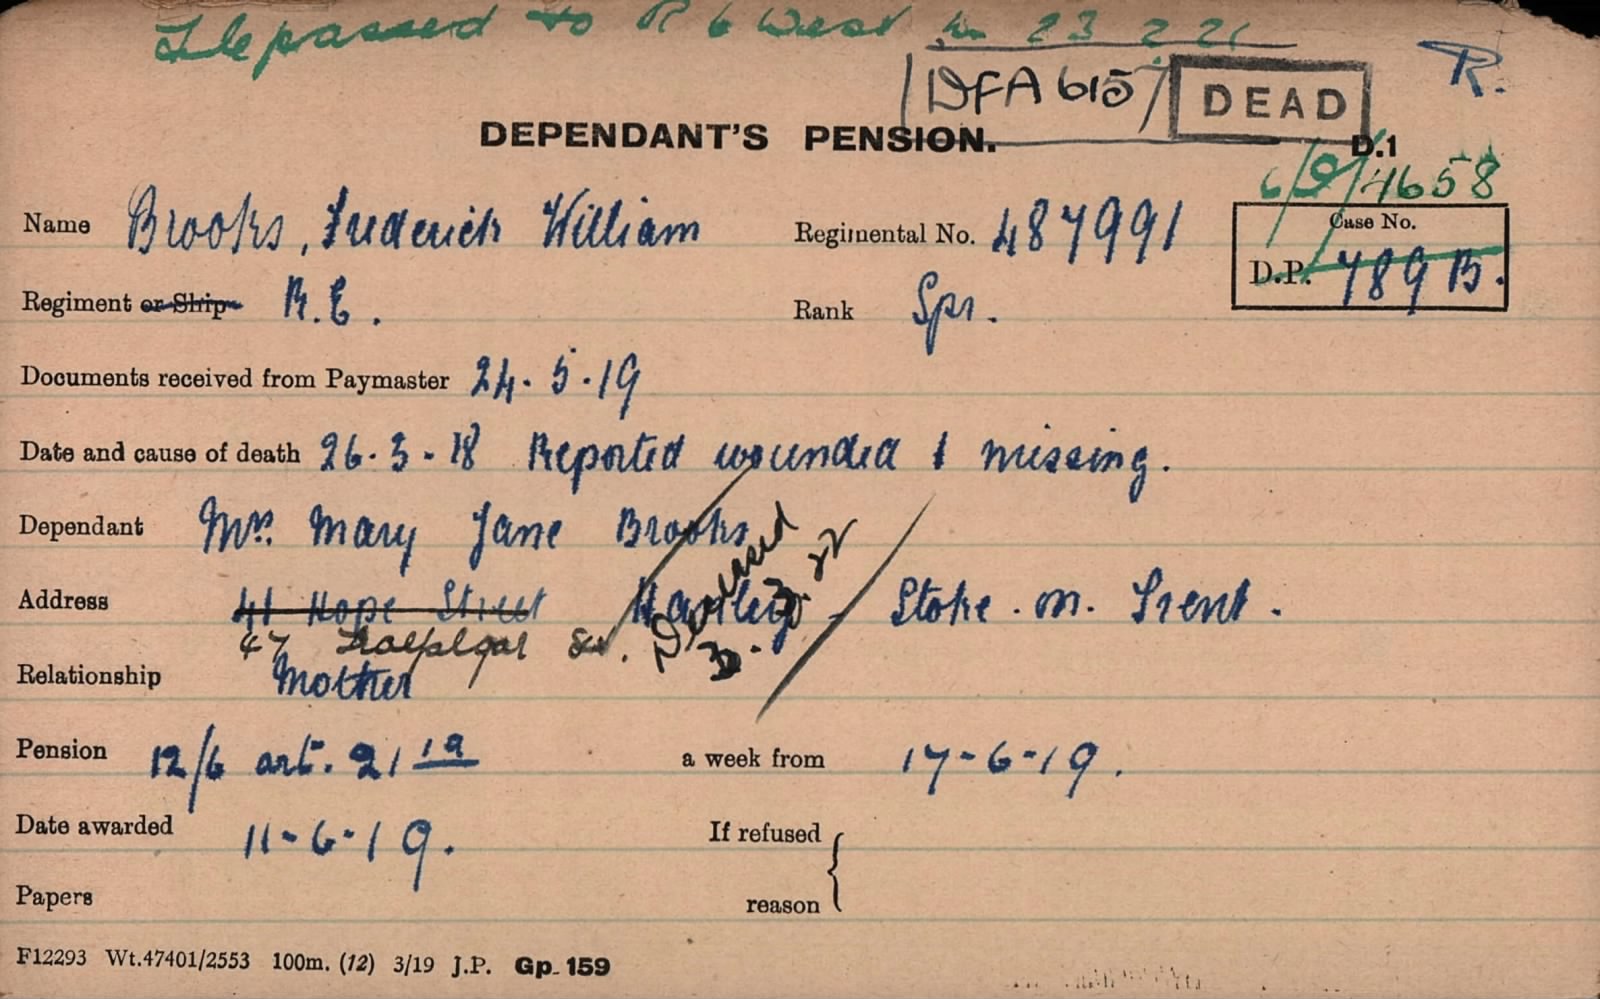 File passed to R 6 West on 23 2 21
DFA 6157 DEAD R.
DEPENDANT'S PENSION. D.1
6/D/4658
Name Brooks, Frederick William Regimental No. 487991 Case No.
D.P. 789 B.
Regiment or Ship R.E. Rank Spr.
Documents received from Paymaster 24.5.19
Date and cause of death 26.3-18 Reported wounded & missing.
Dependant Mrs. Mary Jane Brooks
Deceased
3.3.22
Address 41 Hope Street Hanley - Stoke. on. Trent.
47 Trafalgar St.
Relationship Mother
Pension 12/6 art. 21 1a a week from 17-6-19.
Date awarded 11-6-19. If refused
Papers reason
F12293 Wt.47401/2553 100m. (12) 3/19 J.P. Gp. 159